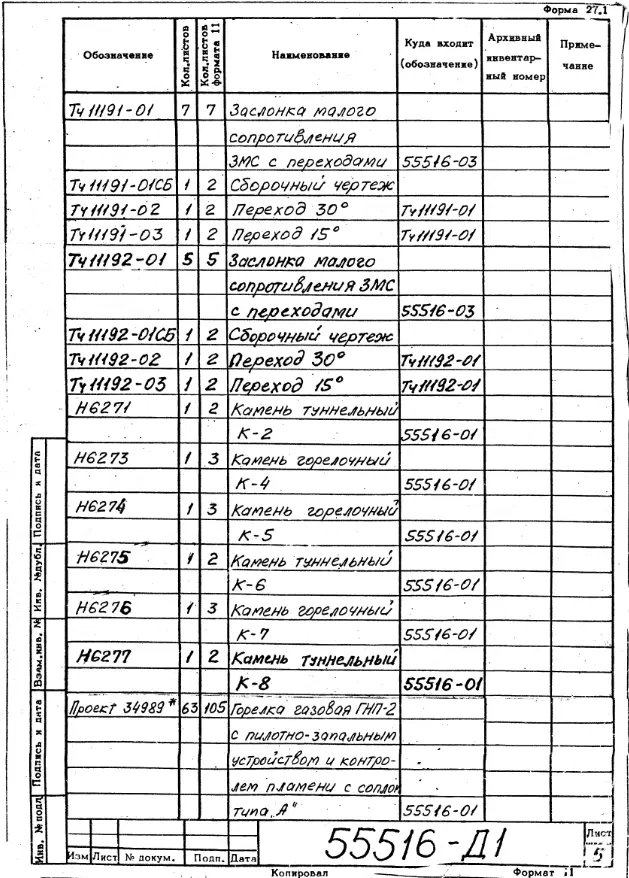 Форма 27.1
Обозначение Кол.листов Кол.листов формата 11 Наименование Куда входит (обозначение) Архивный инвентар- ный номер Приме- чание
Тч 11191-01 7 7 Заслонка малого
сопротивления
ЗМС с переходами 55516-03
Тч 11191-01СБ 1 2 Сборочный чертеж
Тч 11191-02 1 2 Переход 30° Тч 11191-01
Тч 11191-03 1 2 Переход 15° Тч 11191-01
Тч 11192-01 5 5 Заслонка малого
сопротивления ЗМС
с переходами 55516-03
Тч 11192-01СБ 1 2 Сборочный чертеж
Тч 11192-02 1 2 Переход 30° Тч 11192-01
Тч 11192-03 1 2 Переход 15° Тч 11192-01
Н6271 1 2 Камень туннельный
К-2 55516-01
Н6273 1 3 Камень горелочный
К-4 55516-01
Н6274 1 3 Камень горелочный
К-5 55516-01
Н6275 1 2 Камень туннельный
К-6 55516-01
Н6276 1 3 Камень горелочный
К-7 55516-01
Н6277 1 2 Камень туннельный
К-8 55516-01
Проект 34989* 63 105 Горелка газовая ГНП-2
с пилотно-запальным
устройством и контро-
лем пламени с соплом
типа „А" 55516-01
Инв. № подл. Подпись и дата Взам.инв. № Инв. №дубл. Подпись и дата
Изм Лист № докум. Подп. Дата
55516-Д1
Лист
5
Копировал Формат 11